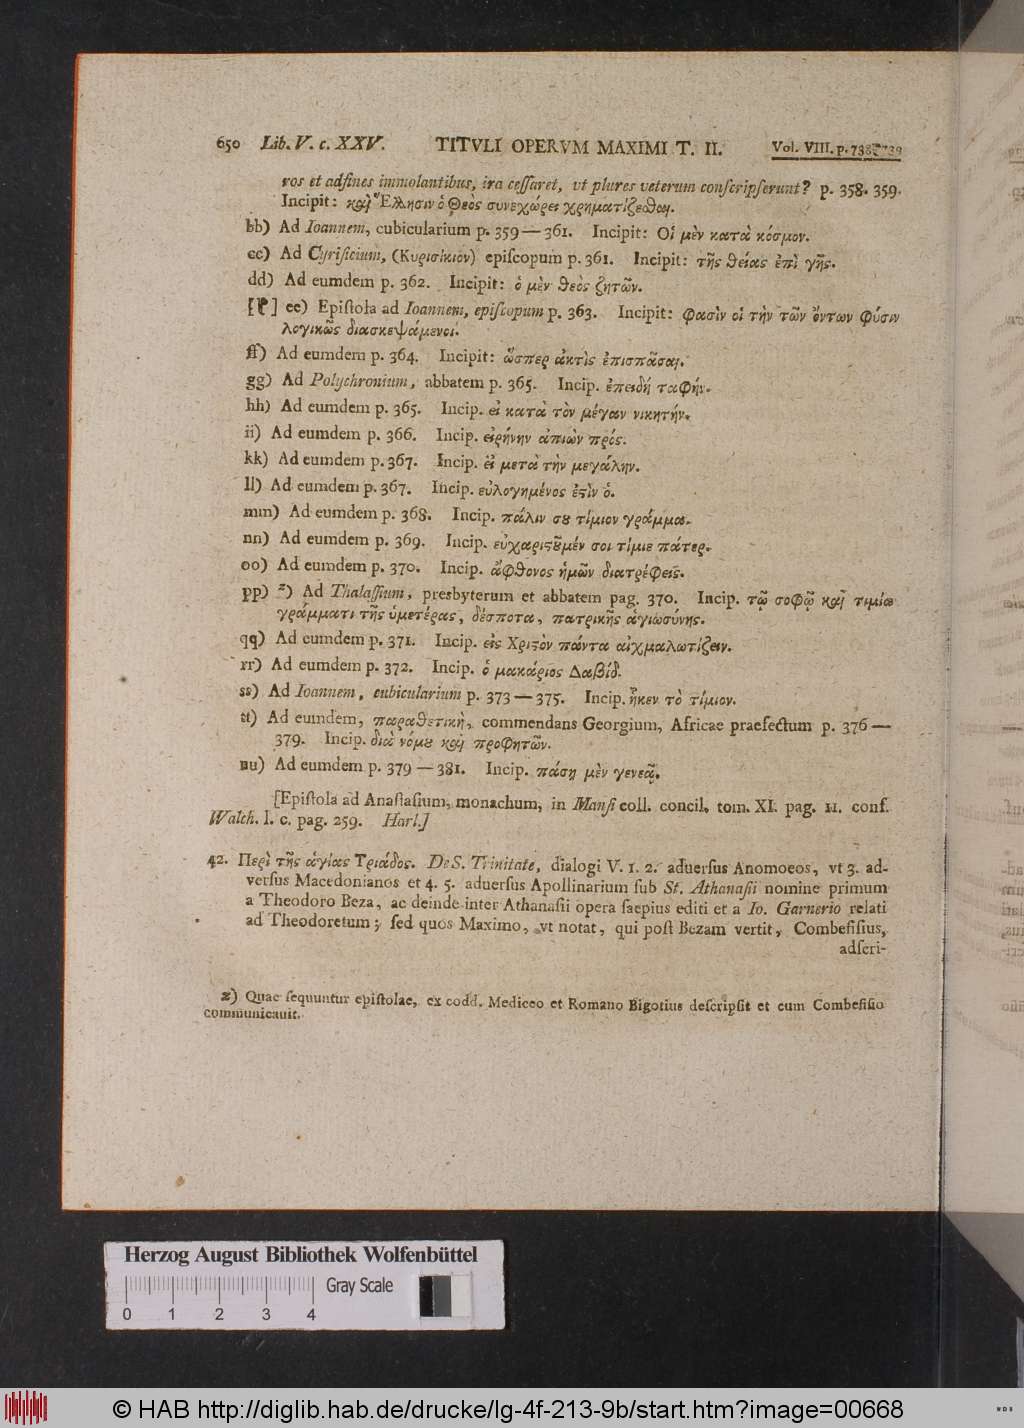 650 Lib. V. c. XXV. TITVLI OPERVM MAXIMI T. II. Vol. VIII. p. 738 739
ros et adfines immolantibus, ira ceſſaret, vt plures veterum conſcripſerunt? p. 358. 359.
Incipit: καὶ Ἕλλησιν ὁ Θεὸς συνεχώρει χρηματίζεσθαι.
bb) Ad Ioannem, cubicularium p. 359 — 361. Incipit: Οἱ μὲν κατὰ κόσμον.
cc) Ad Cyriſicium, (Κυρισίκιον) epiſcopum p. 361. Incipit: τῆς θείας ἐπὶ γῆς.
dd) Ad eumdem p. 362. Incipit: ὁ μὲν θεὸς ζητῶν.
ee) Epiſtola ad Ioannem, epiſcopum p. 363. Incipit: φασὶν οἱ τὴν τῶν ὄντων φύσιν
λογικῶς διασκεψάμενοι.
ff) Ad eumdem p. 364. Incipit: ὥσπερ ἀκτὶς ἐπισπᾶσαι.
gg) Ad Polychronium, abbatem p. 365. Incip. ἐπειδή ταφήν.
hh) Ad eumdem p. 365. Incip. εἰ κατὰ τὸν μέγαν νικητήν.
ii) Ad eumdem p. 366. Incip. εἰρήνην ἀπιὼν πρός.
kk) Ad eumdem p. 367. Incip. εἰ μετὰ τὴν μεγάλην.
ll) Ad eumdem p. 367. Incip. εὐλογημένος ἐϛὶν ὁ.
mm) Ad eumdem p. 368. Incip. πάλιν σȣ τίμιον γράμμα.
nn) Ad eumdem p. 369. Incip. εὐχαριϛȣ͂μέν σοι τίμιε πάτερ.
oo) Ad eumdem p. 370. Incip. ἄφθονος ἡμῶν διατρέφεις.
pp) z) Ad Thalaſſium, presbyterum et abbatem pag. 370. Incip. τῷ σοφῷ καὶ τιμίῳ
γράμματι τῆς ὑμετέρας, δέσποτα, πατρικῆς ἁγιωσύνης.
qq) Ad eumdem p. 371. Incip. εἰς Χριϛὸν πάντα αἰχμαλωτίζειν.
rr) Ad eumdem p. 372. Incip. ὁ μακάριος Δαβίδ.
ss) Ad Ioannem, cubicularium p. 373 — 375. Incip. ἧκεν τὸ τίμιον.
tt) Ad eumdem, παραθετικὴ, commendans Georgium, Africae praefectum p. 376 —
379. Incip. διὰ νόμȣ καὶ προφητῶν.
uu) Ad eumdem p. 379 — 381. Incip. πάσῃ μὲν γενεᾷ.
[Epiſtola ad Anaſtaſium, monachum, in Manſi coll. concil. tom. XI. pag. 11. conf.
Walch. l. c. pag. 259. Harl.]
42. Περὶ τῆς ἁγίας Τριάδος. De S. Trinitate, dialogi V. 1. 2. aduerſus Anomoeos, vt 3. ad-
verſus Macedonianos et 4. 5. aduerſus Apollinarium ſub St. Athanaſii nomine primum
a Theodoro Beza, ac deinde inter Athanaſii opera ſaepius editi et a Io. Garnerio relati
ad Theodoretum; ſed quos Maximo, vt notat, qui poſt Bezam vertit, Combefiſius,
adſcri-
z) Quae ſequuntur epiſtolae, ex codd. Mediceo et Romano Bigotius deſcripſit et cum Combefiſio
communicauit.
Herzog August Bibliothek Wolfenbüttel
Gray Scale
0 1 2 3 4
© HAB http://diglib.hab.de/drucke/lg-4f-213-9b/start.htm?image=00668